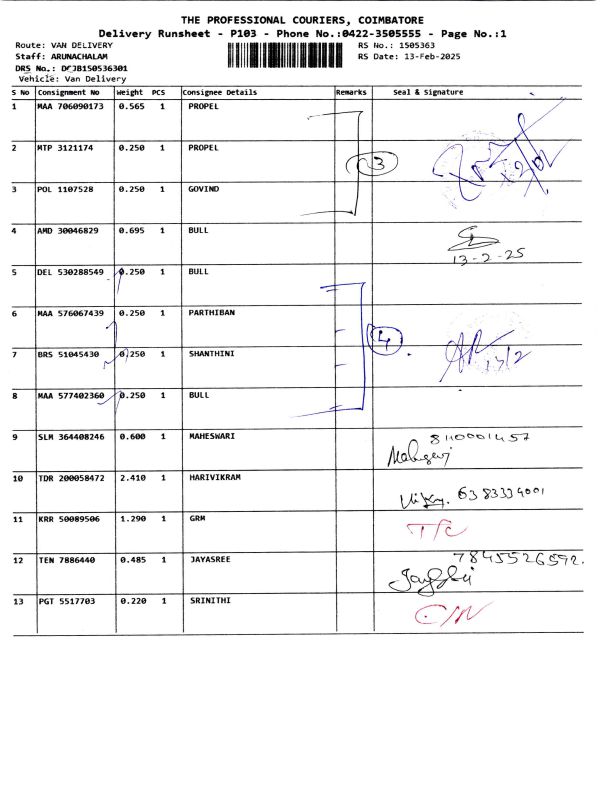 THE PROFESSIONAL COURIERS, COIMBATORE
Delivery Runsheet - P103 - Phone No.:0422-3505555 - Page No.:1
Route: VAN DELIVERY RS No.: 1505363
Staff: ARUNACHALAM RS Date: 13-Feb-2025
DRS No.: DCJB150536301
Vehicle: Van Delivery
S No Consignment No Weight PCS Consignee Details Remarks Seal & Signature
1 MAA 706090173 0.565 1 PROPEL
2 MTP 3121174 0.250 1 PROPEL
3
3 POL 1107528 0.250 1 GOVIND
4 AMD 30046829 0.695 1 BULL
13-2-25
5 DEL 530288549 0.250 1 BULL
6 MAA 576067439 0.250 1 PARTHIBAN
4
7 BRS 51045430 0.250 1 SHANTHINI
8 MAA 577402360 0.250 1 BULL
9 SLM 364408246 0.600 1 MAHESWARI 8110001457
10 TDR 200058472 2.410 1 HARIVIKRAM 6383339001
11 KRR 50089506 1.290 1 GRM
12 TEN 7886440 0.485 1 JAYASREE 7845526592.
13 PGT 5517703 0.220 1 SRINITHI